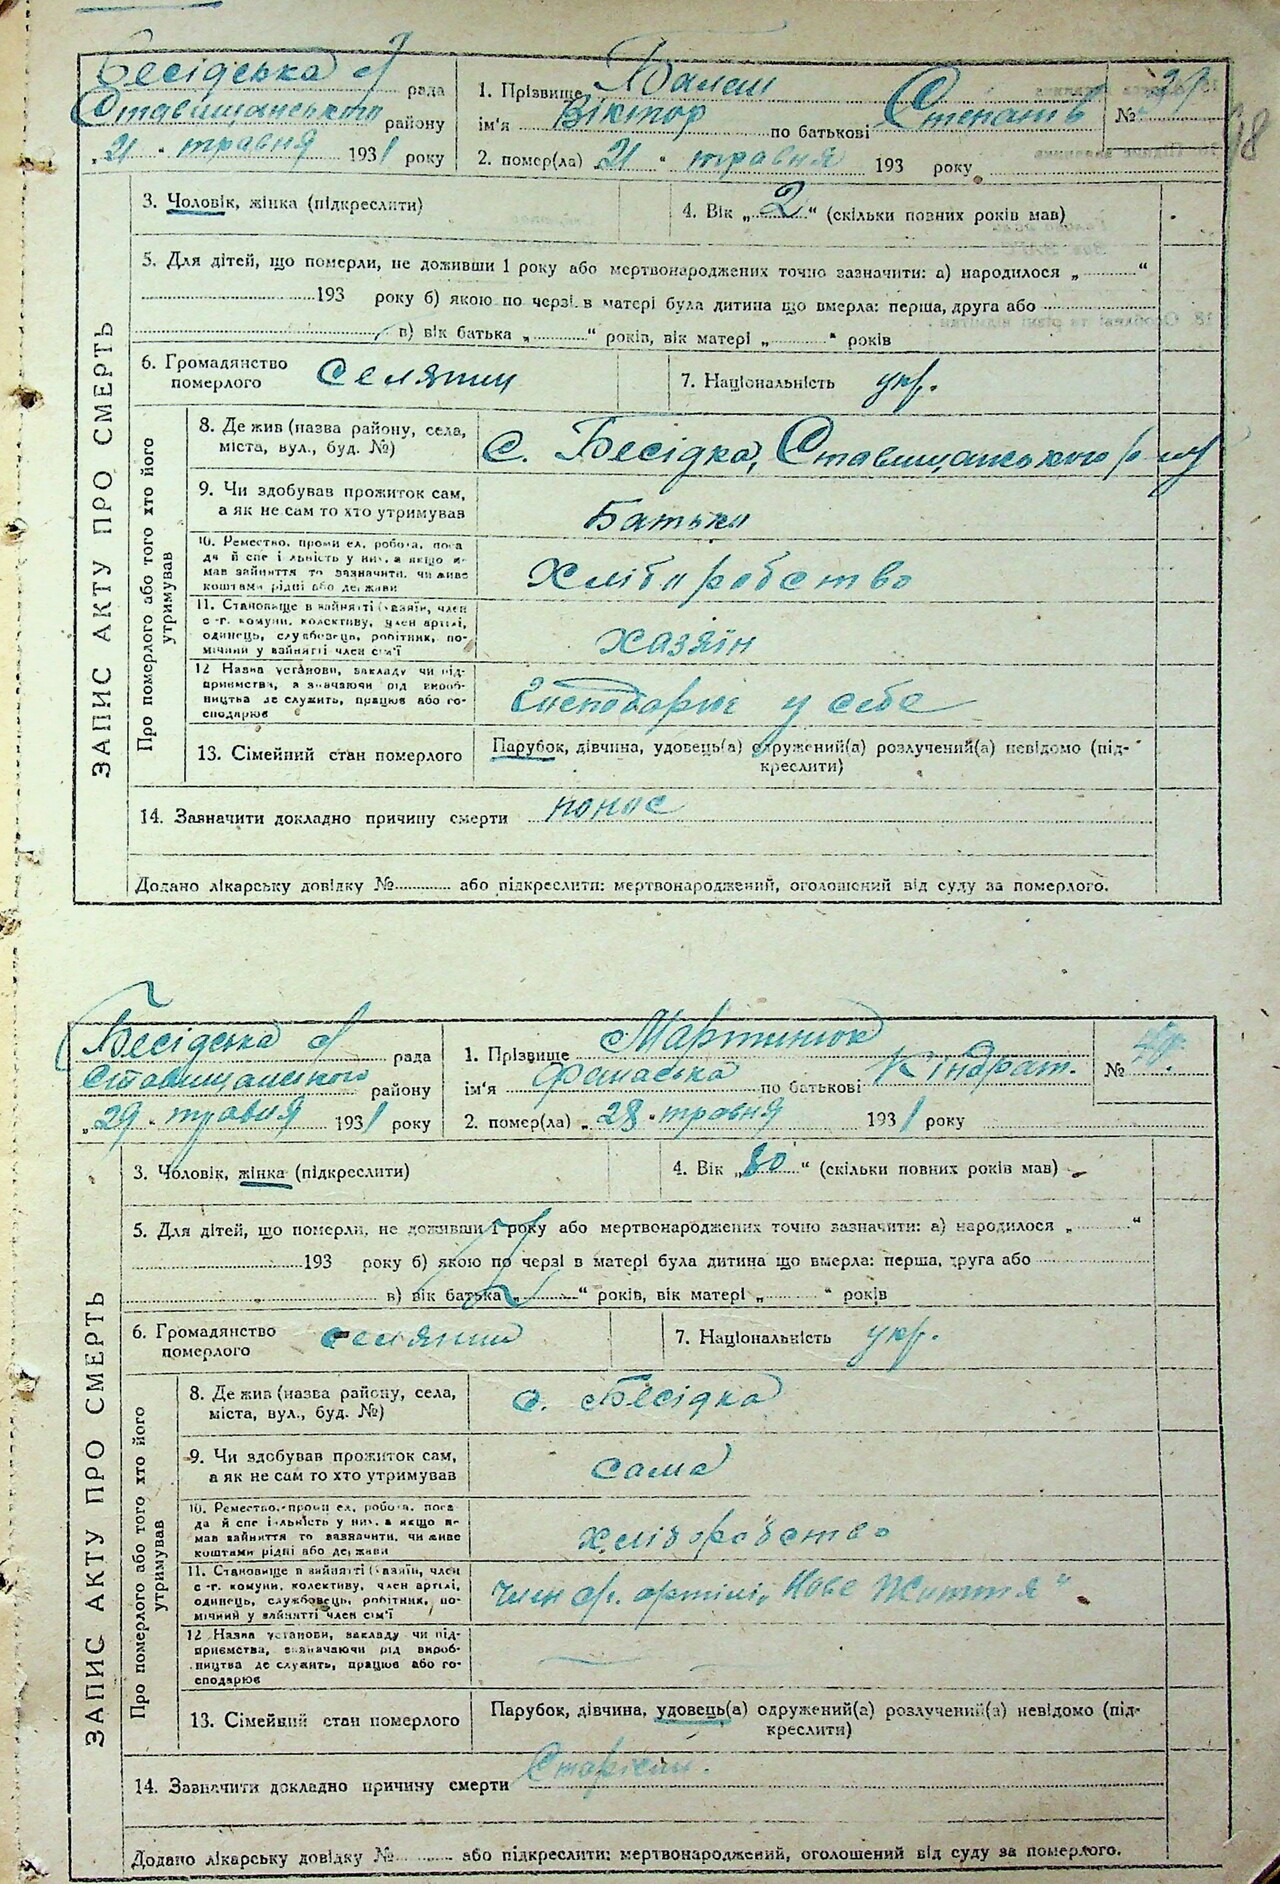 Бесідська с/
рада
Ставищанського району
„21“ травня 1931 року
1. Прізвище
ім'я Віктор по батькові Степан.
№
2. помер(ла) 21 “ травня 193 року
98
ЗАПИС АКТУ ПРО СМЕРТЬ
3. Чоловік, жінка (підкреслити)
4. Вік „ 2 “ (скільки повних років мав)
5. Для дітей, що померли, не доживши 1 року або мертвонароджених точно зазначити: а) народилося „ “
193 року б) якою по черзі в матері була дитина що вмерла: перша, друга або
в) вік батька „ “ років, вік матері „ “ років
6. Громадянство померлого селянин
7. Національність укр.
Про померлого або того хто його утримував
8. Де жив (назва району, села, міста, вул., буд. №) с. Бесідка, Ставищанського р-ну
9. Чи здобував прожиток сам, а як не сам то хто утримував Батько
10. Ремество, проми ел, робота, поса да й спе і льність у них, а якщо н- мав зайняття то зазначити, чи живе коштами рідні або держави Хліборобство
11. Становище в зайнятті (хазяїн, член с-г. комуни, колективу, член артілі, одинець, службовець, робітник, по- мічний у зайнятті член сім'ї Хазяїн
12 Назва установи, закладу чи під- приємства, зазначаючи рід вироб- ництва де служить, працює або го- сподарює Господарює у себе
13. Сімейний стан померлого Парубок, дівчина, удовець(а) одружений(а) розлучений(а) невідомо (під- креслити)
14. Зазначити докладно причину смерти понос
Додано лікарську довідку № або підкреслити: мертвонароджений, оголошений від суду за померлого.
Бесідська с/
рада
Ставищанського району
„29“ травня 1931 року
1. Прізвище Мартинюк
ім'я Фанаська по батькові Кіндрат.
№ 40.
2. помер(ла) „28“ травня 1931 року
ЗАПИС АКТУ ПРО СМЕРТЬ
3. Чоловік, жінка (підкреслити)
4. Вік „80“ (скільки повних років мав)
5. Для дітей, що померли, не доживши 1 року або мертвонароджених точно зазначити: а) народилося „ “
193 року б) якою по черзі в матері була дитина що вмерла: перша, друга або
в) вік батька „ “ років, вік матері „ “ років
6. Громадянство померлого селянин
7. Національність укр.
Про померлого або того хто його утримував
8. Де жив (назва району, села, міста, вул., буд. №) с. Бесідка
9. Чи здобував прожиток сам, а як не сам то хто утримував сама
10. Ремество, проми ел, робота, поса да й спе і льність у них, а якщо н- мав зайняття то зазначити, чи живе коштами рідні або держави хліборобство
11. Становище в зайнятті (хазяїн, член с-г. комуни, колективу, член артілі, одинець, службовець, робітник, по- мічний у зайнятті член сім'ї член с/г. артілі „Нове Життя“
12 Назва установи, закладу чи під- приємства, зазначаючи рід вироб- ництва де служить, працює або го- сподарює
13. Сімейний стан померлого Парубок, дівчина, удовець(а) одружений(а) розлучений(а) невідомо (під- креслити)
14. Зазначити докладно причину смерти
Додано лікарську довідку № або підкреслити: мертвонароджений, оголошений від суду за померлого.